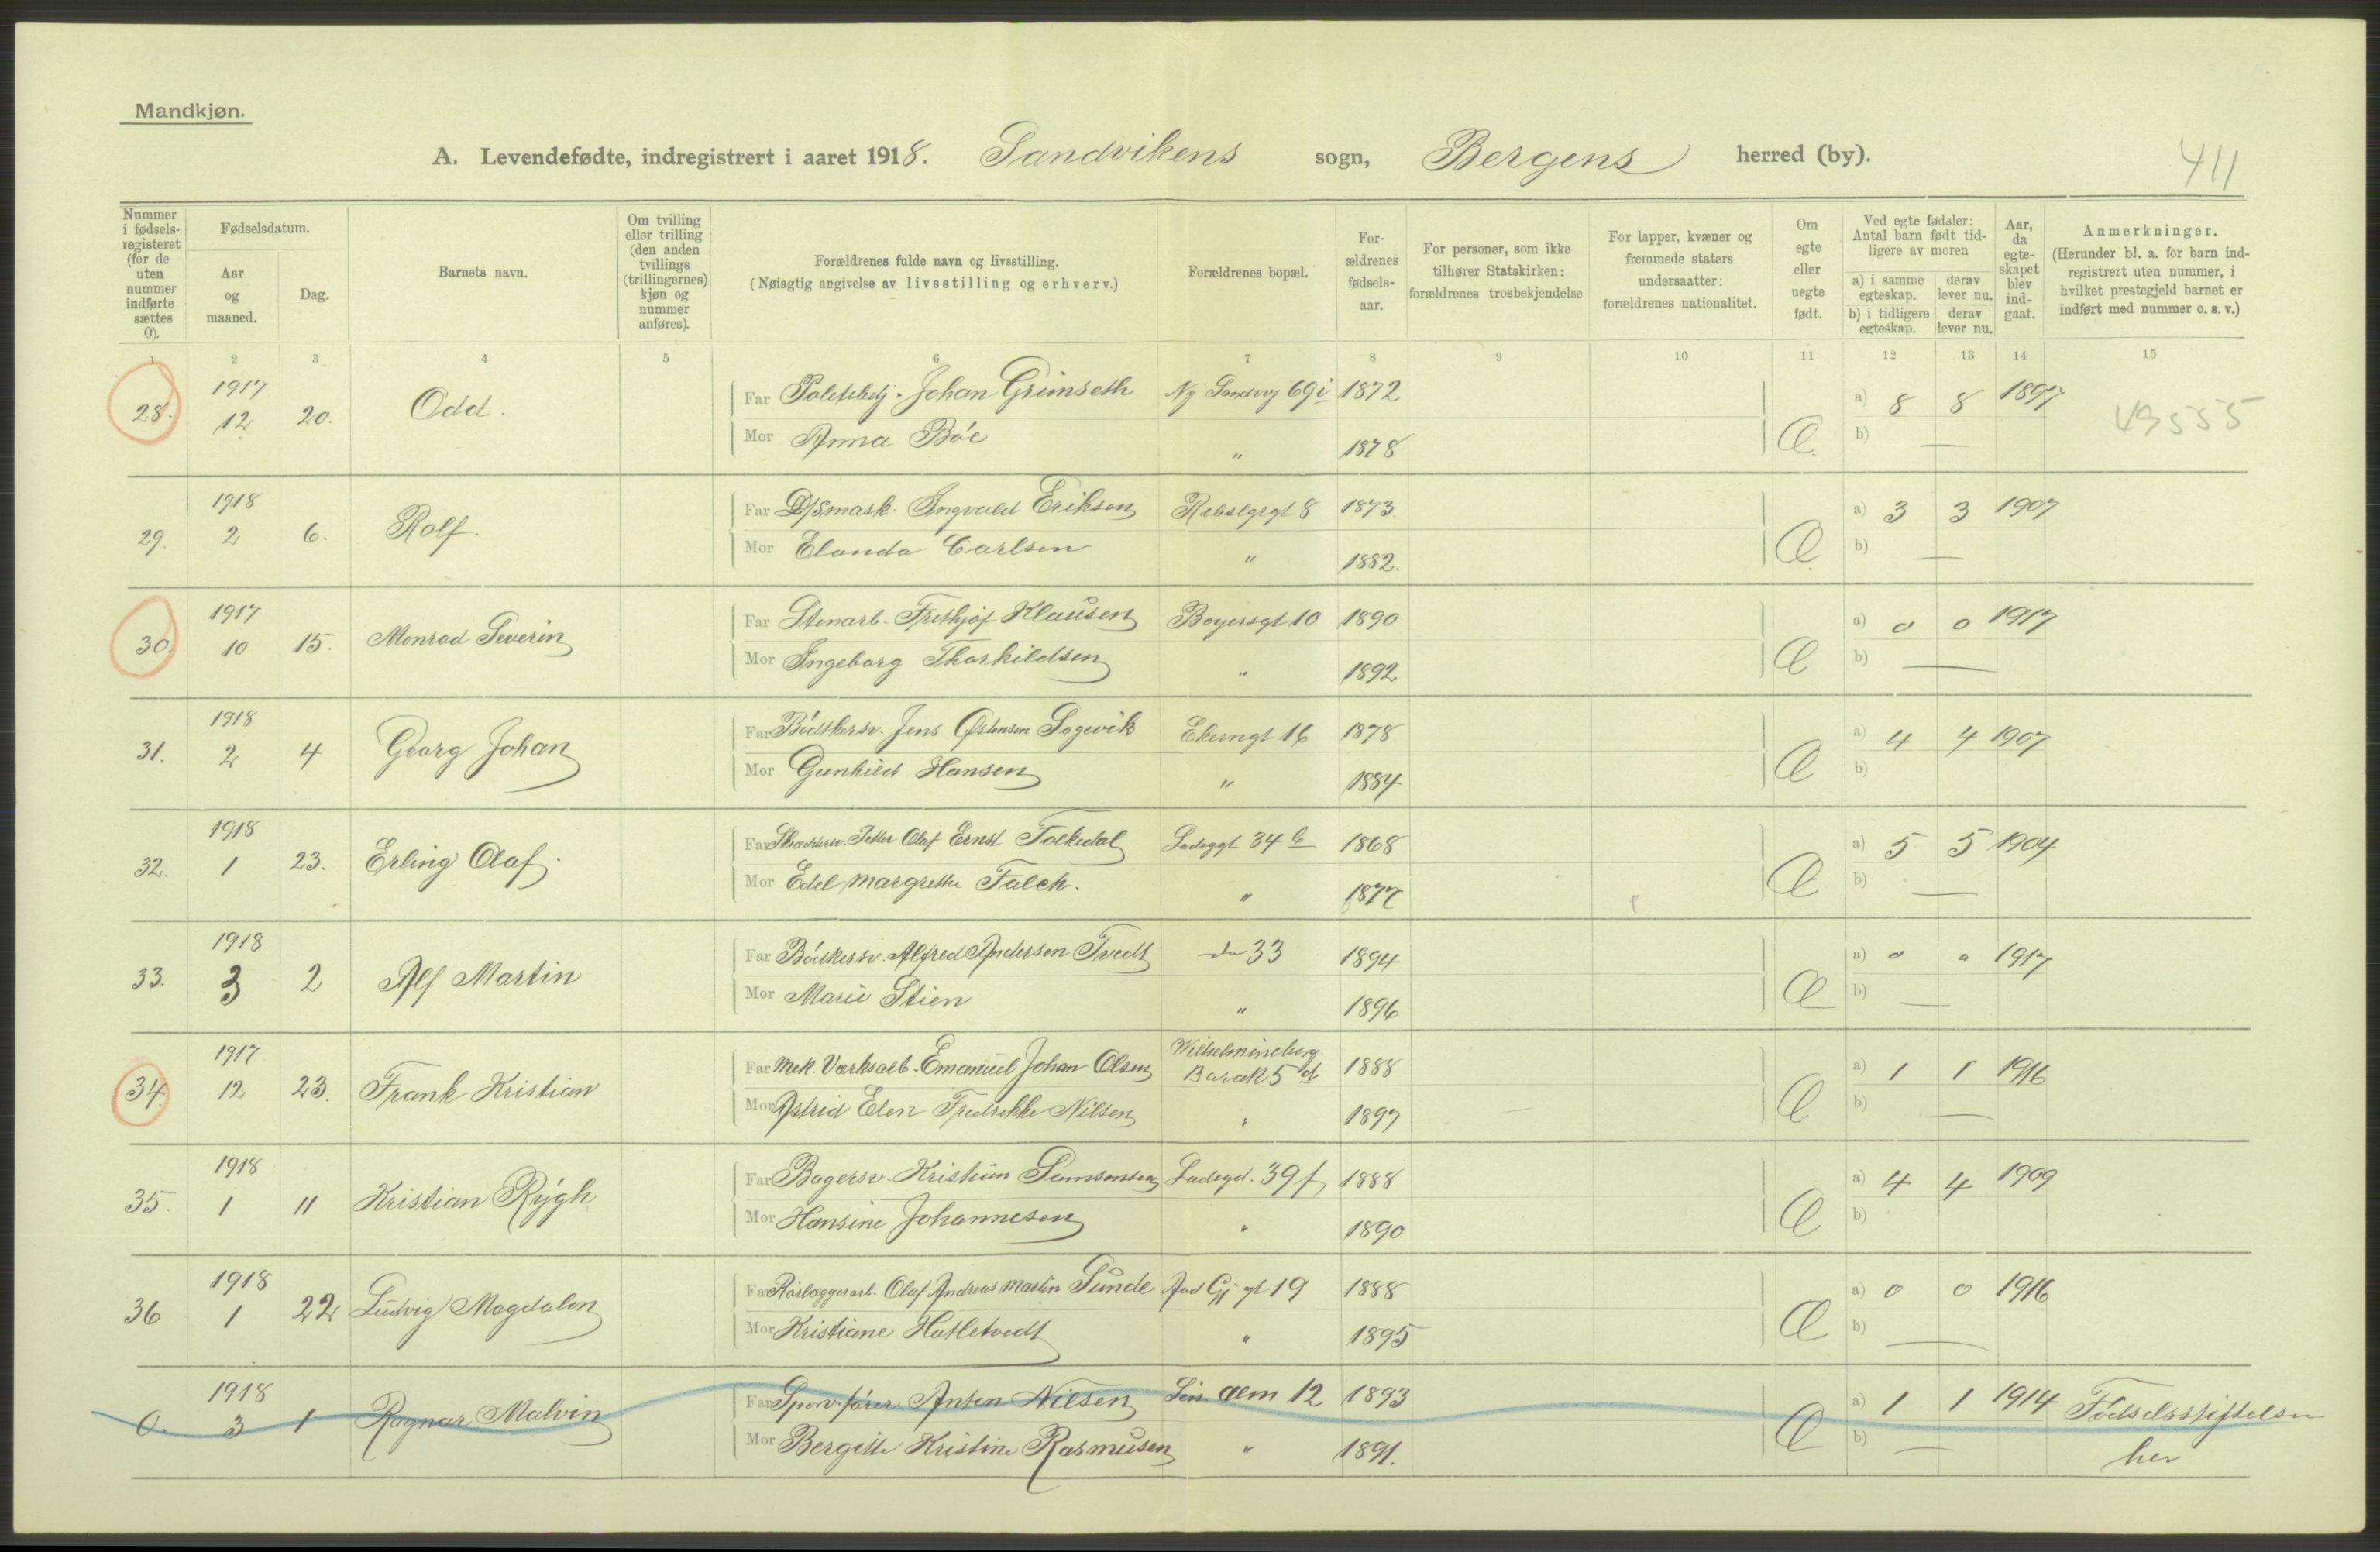 Mandkjøn.
A. Levendefødte, indregistrert i aaret 1918. Sandvikens sogn, Bergens herred (by).
411
Nummer i fødsels-registeret (for de uten nummer indførte sættes 0).
Fødselsdatum.
Aar og maaned.
Dag.
Barnets navn.
Om tvilling eller trilling (den anden tvillings (trillingernes) kjøn og nummer anføres).
Forældrenes fulde navn og livsstilling.
(Nøiagtig angivelse av livsstilling og erhverv.)
Forældrenes bopæl.
For-ældrenes fødsels-aar.
For personer, som ikke tilhører Statskirken: forældrenes trosbekjendelse
For lapper, kvæner og fremmede staters undersaatter: forældrenes nationalitet.
Om egte eller uegte født.
Ved egte fødsler: Antal barn født tid-ligere av moren
a) i samme egteskap.
derav lever nu.
b) i tidligere egteskap.
derav lever nu.
Aar, da egte-skapet blev ind-gaat.
Anmerkninger.
(Herunder bl. a. for barn ind-registrert uten nummer, i hvilket prestegjeld barnet er indført med nummer o. s. v.)
1 2 3 4 5 6 7 8 9 10 11 12 13 14 15
28. 1917 12 20. Odd. Far Johan Grimseth Ny Sandvvj 69i 1872 Æ a) 8 8 1897
Mor Anna Bøe " 1878 b) —
43555
29. 1918 2 6. Rolf. Far D/Smask. Ingvald Eriksen Rebslgrgt 8 1873 Æ a) 3 3 1907
Mor Elanda Carlsen " 1882. b) —
30. 1917 10 15. Monrad Severin Far Stenarb. Frethjof Klausen Beyersgt 10 1890 Æ a) 0 0 1917
Mor Ingeborg Thorkildsen " 1892 b) —
31. 1918 2 4 Georg Johan Far Bødtkersv. Jens Østensen Sagevik Ekerngt 16 1878 Æ a) 4 4 1907
Mor Gunhild Hansen " 1884 b)
32. 1918 1 23. Erling Olaf. Far Petter Olaf Ernst Folkedal Ladeggt 34 b 1868 Æ a) 5 5 1904
Mor Edel Margrethe Falck. " 1877 b) —
33. 1918 3 2 Alf Martin Far Bødkersv. Alfred Andersen Tvedt do 33 1894 Æ a) 0 0 1917
Mor Marie Stien " 1896 b) —
34. 1917 12 23. Frank Kristian Far Mek. Værksarb. Emanuel Johan Olsen Wilhelmineborg Barak 5 d 1888 Æ a) 1 1 1916
Mor Astrid Elen Fredrekke Nilsen " 1897 b) —
35. 1918 1 11 Kristian Rygh Far Bagersv. Kristian Samsonsen Ladegd. 39 f 1888 Æ a) 4 4 1909
Mor Hansine Johannesen " 1890 b)
36 1918 1 22 Ludvig Magdalon Far Rørlæggerarb. Olaf Andreas Martin Sunde Aad Gj gt 19 1888 Æ a) 0 0 1916
Mor Kristiane Hatletvedt " 1895 b) —
0. 1918 3 1 Ragnar Malvin Far Sporvfører Ansen Nilsen alm 12 1893 Æ a) 1 1 1914 Fødselsstiftelsen
Mor Bergitte Kristine Rasmusen " 1891. b) — her